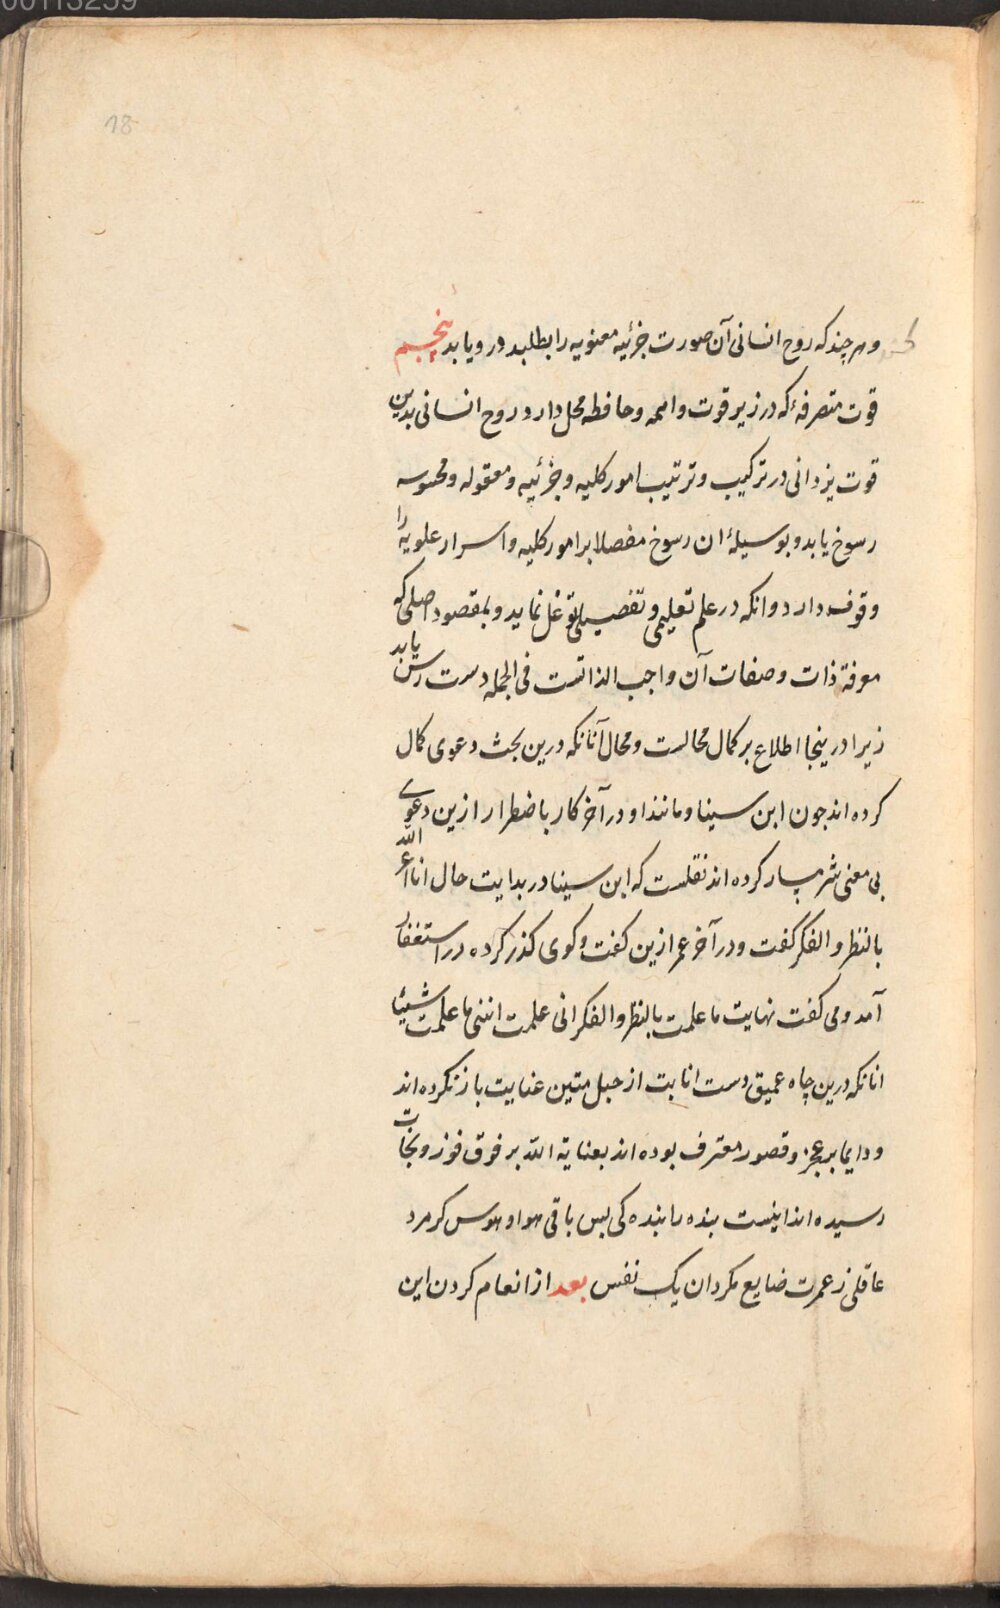 00113259
18
و هر چند که روح انسانی آن صورت جزئیه معنویه را بطلبد در و یابد پنجم
قوت متصرفهٔ که در زیر قوت واهمه و حافظه محل دارد روح انسانی بدین
قوت یزدانی در ترکیب و ترتیب امور کلیه و جزئیه و معقوله و محسوسه
رسوخ یابد و بوسیلهٔ ان رسوخ مفصلا بر امور کلیه و اسرار علویه را
وقوف دارد و انکه در علم تعلیمی و تفصیلی توغل نماید و بمقصود اصلی که
معرفة ذات و صفات آن واجب الذاتست فی الجمله دست رس یابد
زیرا درینجا اطلاع بر کمال محالست و محال آنانکه درین بحث دعوی کمال
کرده اند جون ابن سینا و مانند او در آخر کار باضطرار ازین دعوی
بی معنی شرمسار کرده اند نقلست که ابن سینا در بدایت حال انا اعرف الله
بالنظر و الفکر گفت و در آخر عمر ازین کفت و کوی کذر کرده در استغفار
آمد و می کفت نهایت ما علمت بالنظر و الفکر انی علمت اننی ما علمت شیئا
انانکه درین چاه عمیق دست انابت از حبل متین عنایت باز نکرده اند
و دایما بر عجز و قصور معترف بوده اند بعنایة الله بر فرق فوز و نجات
رسیده اند اینست بنده را بنده کی بس باقی هوا و هوس کر مرد
عاقلی ز عمرت ضایع مکردان یک نفس بعد از انعام کردن این